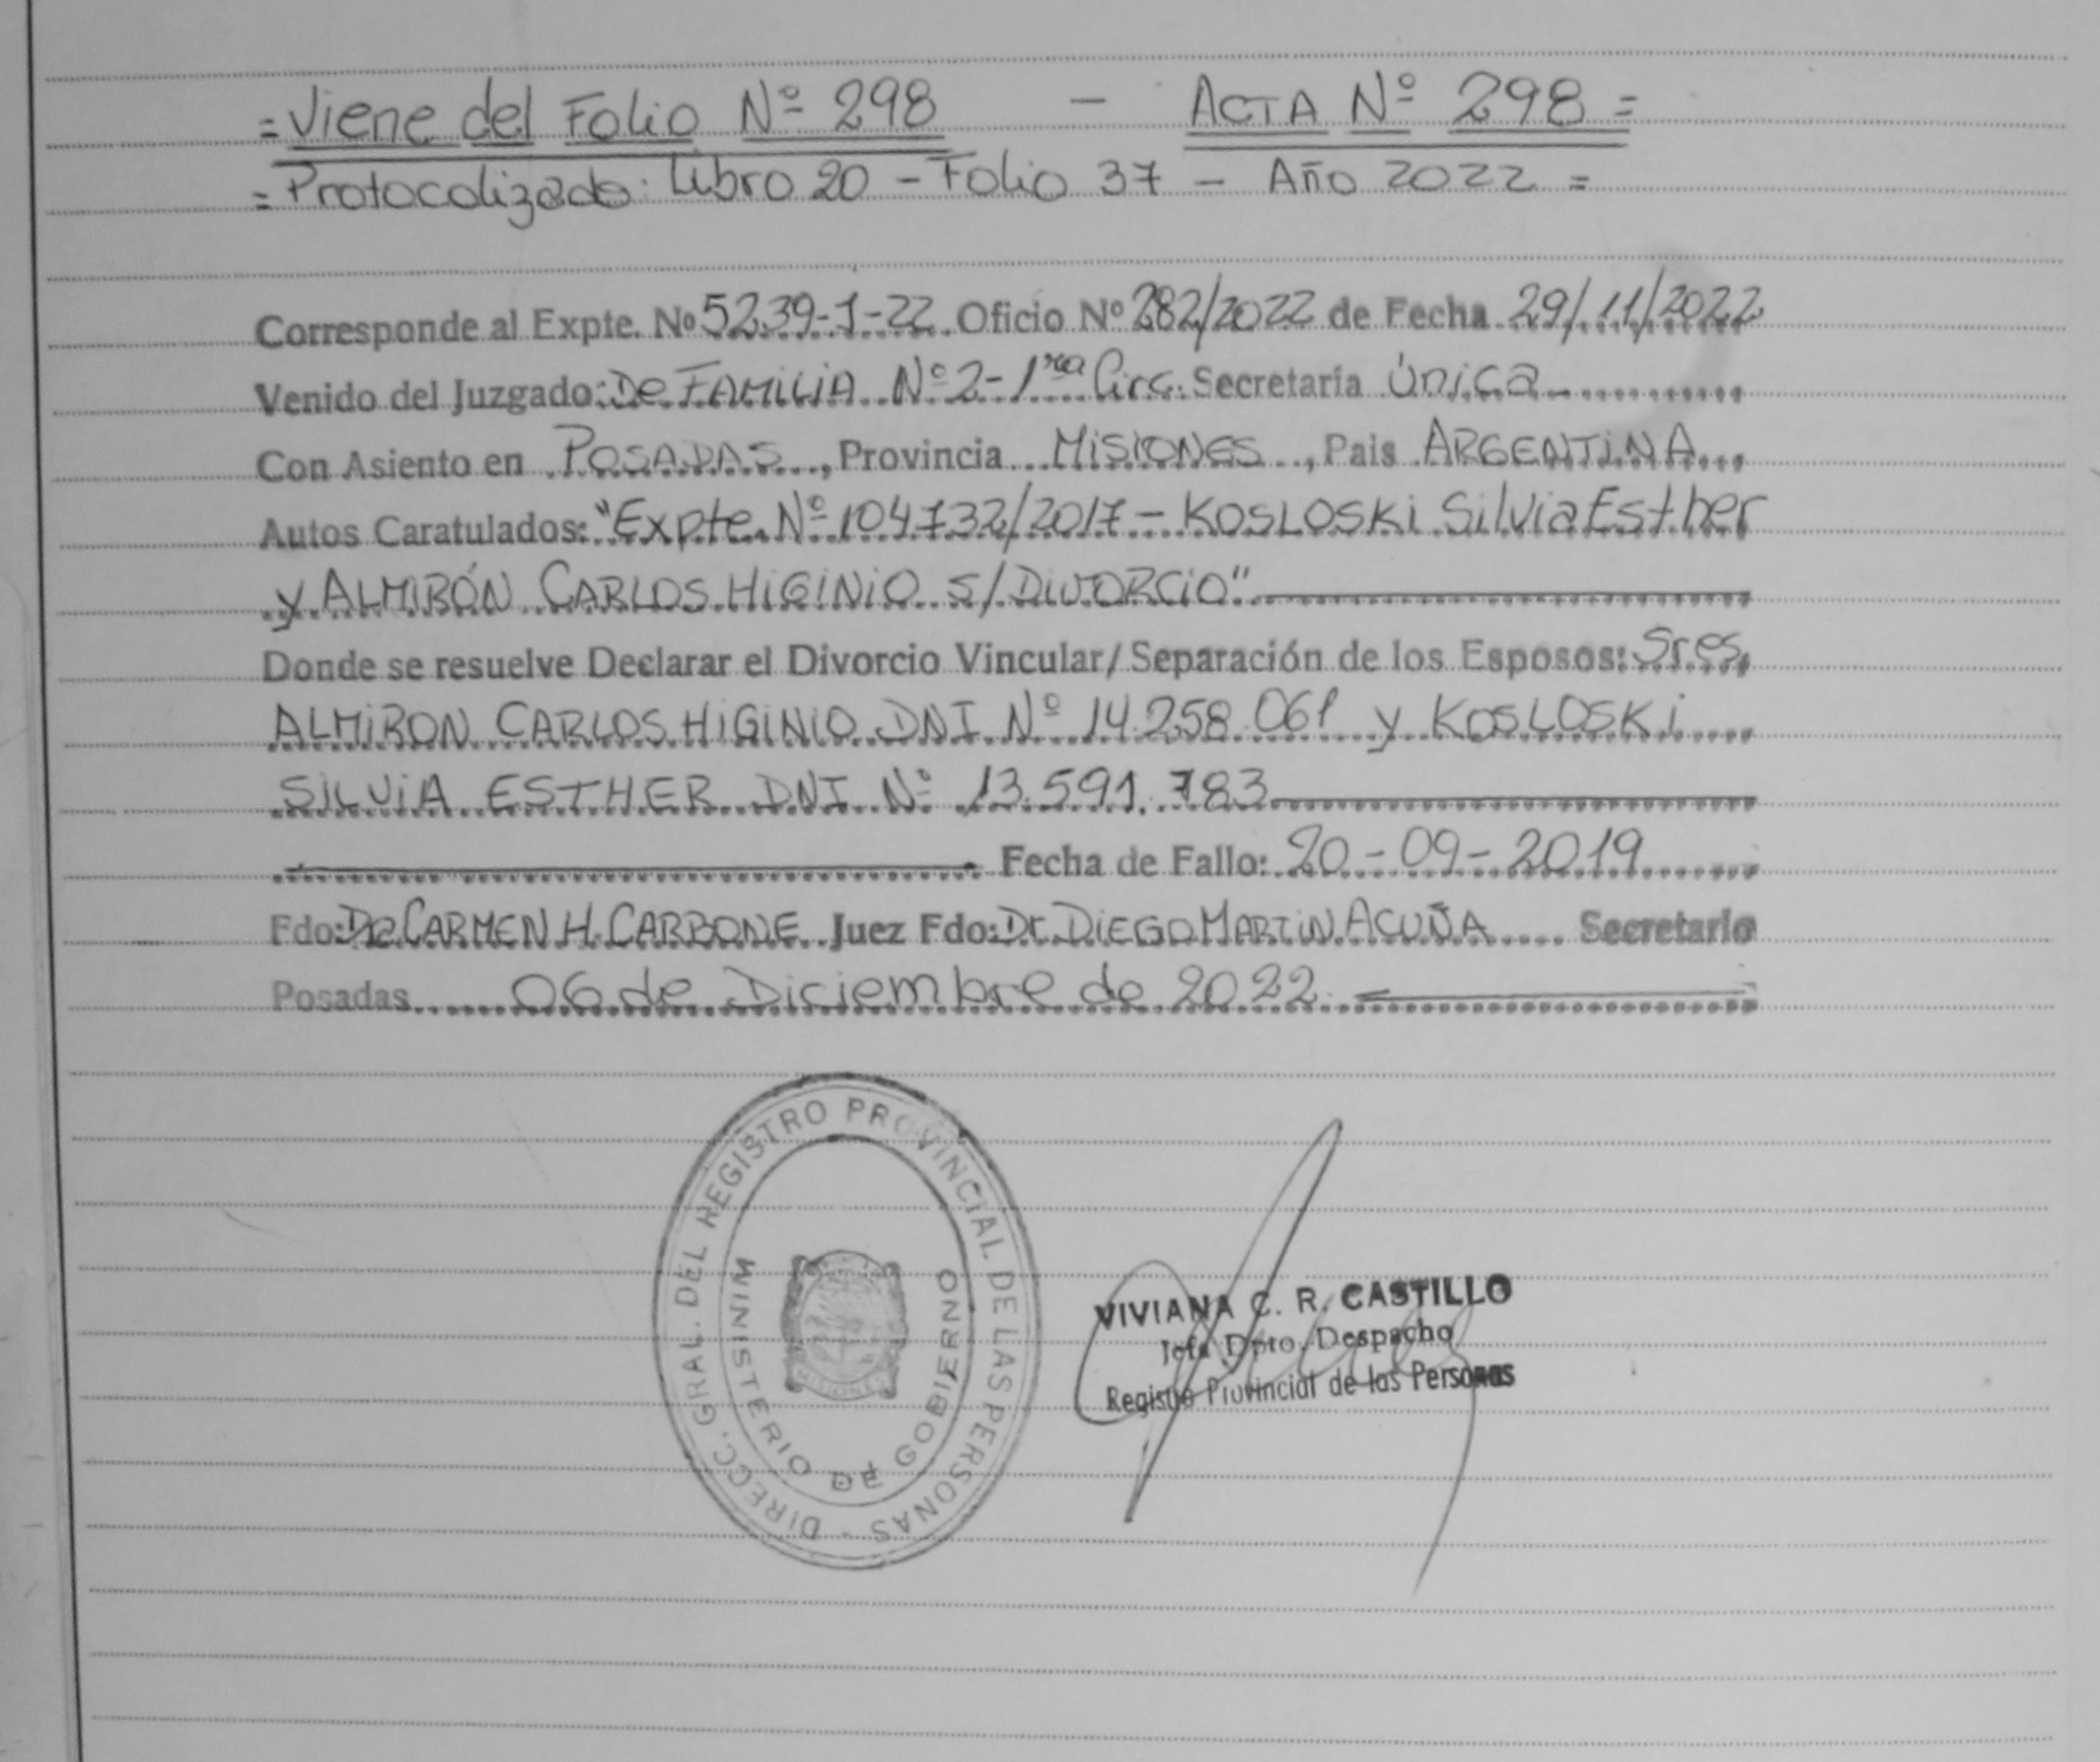 = Viene del Folio Nº 298 - ACTA Nº 298 =
= Protocolizado: Libro 20 - Folio 37 - Año 2022 =
Corresponde al Expte. Nº 5239-1-22 Oficio Nº 282/2022 de Fecha 29/11/2022
Venido del Juzgado: De FAMILIA Nº 2 - 1ra Circ. Secretaría única
Con Asiento en POSADAS, Provincia MISIONES, Pais ARGENTINA
Autos Caratulados: "Expte. Nº 104732/2017 - KOSLOSKI Silvia Esther
y ALMIRÓN CARLOS HIGINIO S/DIVORCIO"
Donde se resuelve Declarar el Divorcio Vincular/Separación de los Esposos: Sres.
ALMIRON CARLOS HIGINIO DNI Nº 14.258.061 y KOSLOSKI
SILVIA ESTHER DNI Nº 13.591.783
Fecha de Fallo: 20-09-2019
Fdo: Dra CARMEN H. CARBONE Juez Fdo: Dr. DIEGO MARTIN ACUÑA Secretario
Posadas 06 de Diciembre de 2022
DIRECC. GRAL. DEL REGISTRO PROVINCIAL DE LAS PERSONAS -
MINISTERIO DE GOBIERNO
MISIONES
VIVIANA C. R. CASTILLO
Jefa Dpto. Despacho
Registro Provincial de las Personas